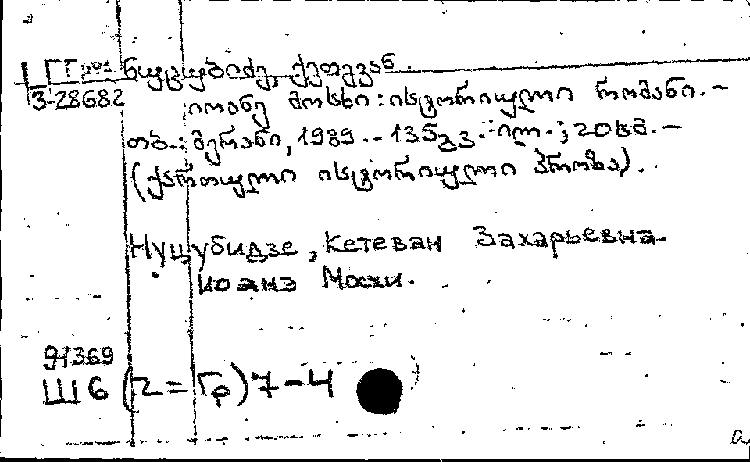 ნუცუბიძე, ქეთევან.
3-28682
იოანე მოსხი : ისტორიული რომანი. –
თბ. : მერანი, 1989. – 135გვ. : ილ. ; 20სმ. –
(ქართული ისტორიული პროზა).
Нуцубидзе, Кетеван Захарьевна
Иоанэ Мосхи.
91369
Ш6 (2=Гр)7-4